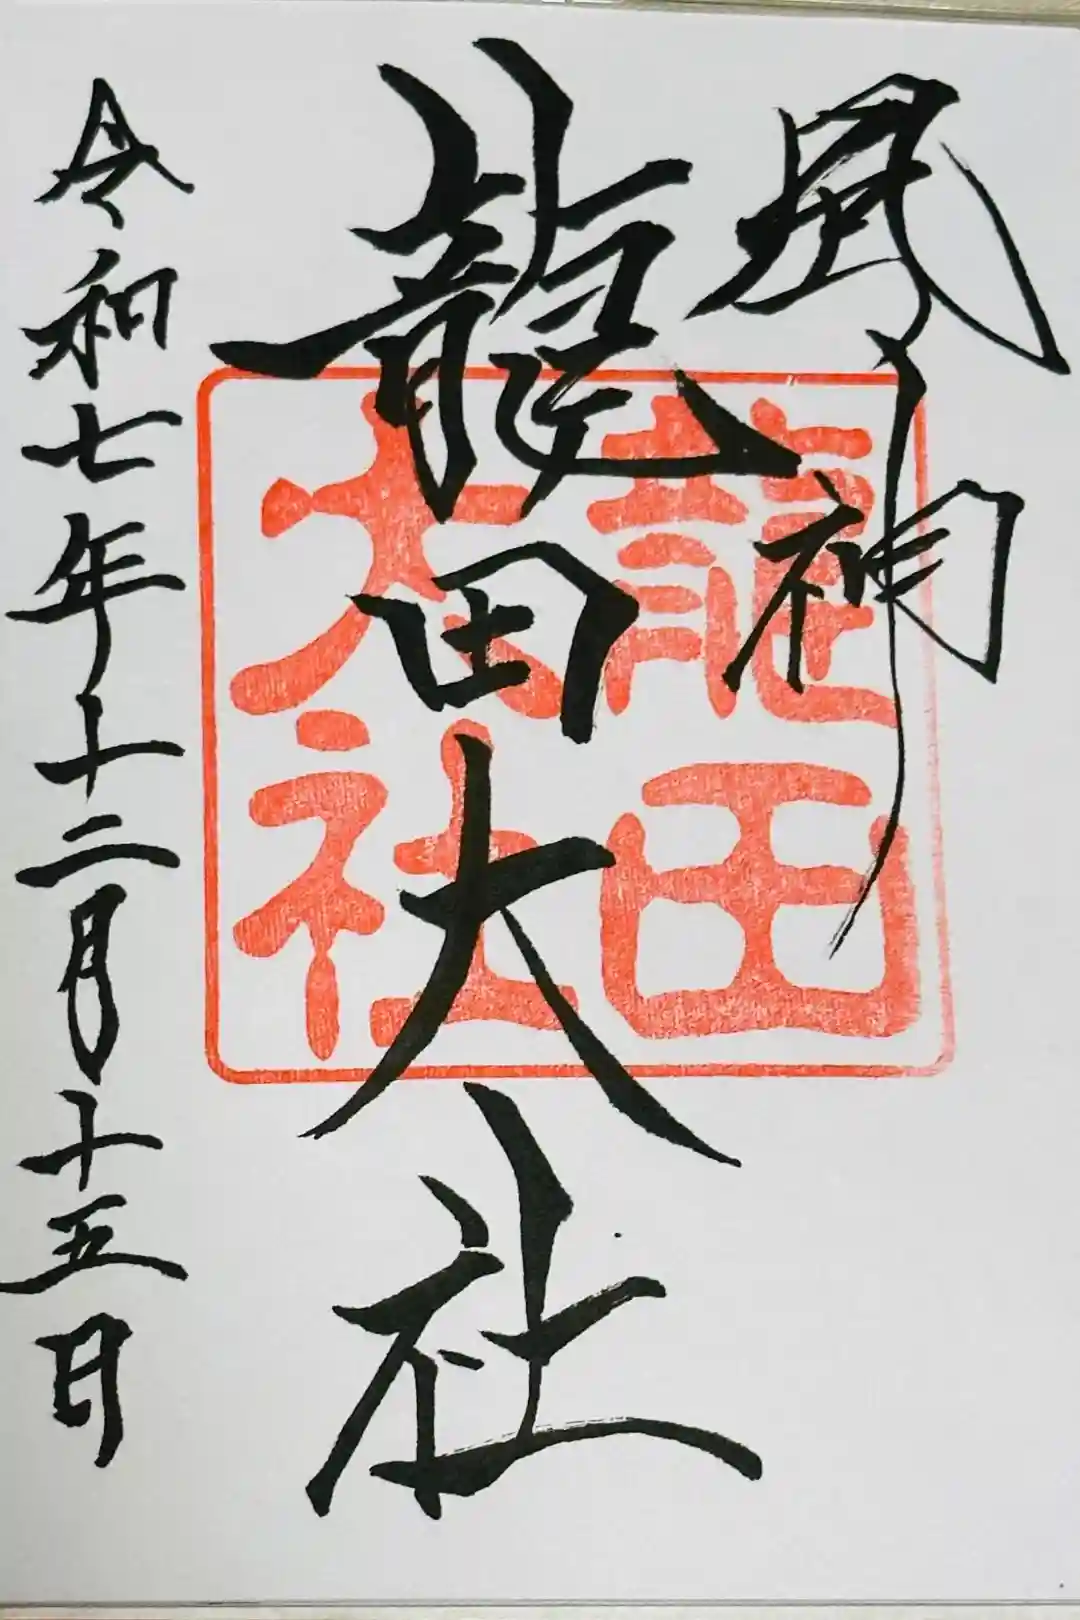 風神
龍田大社
令和七年十二月十五日
龍田
大社